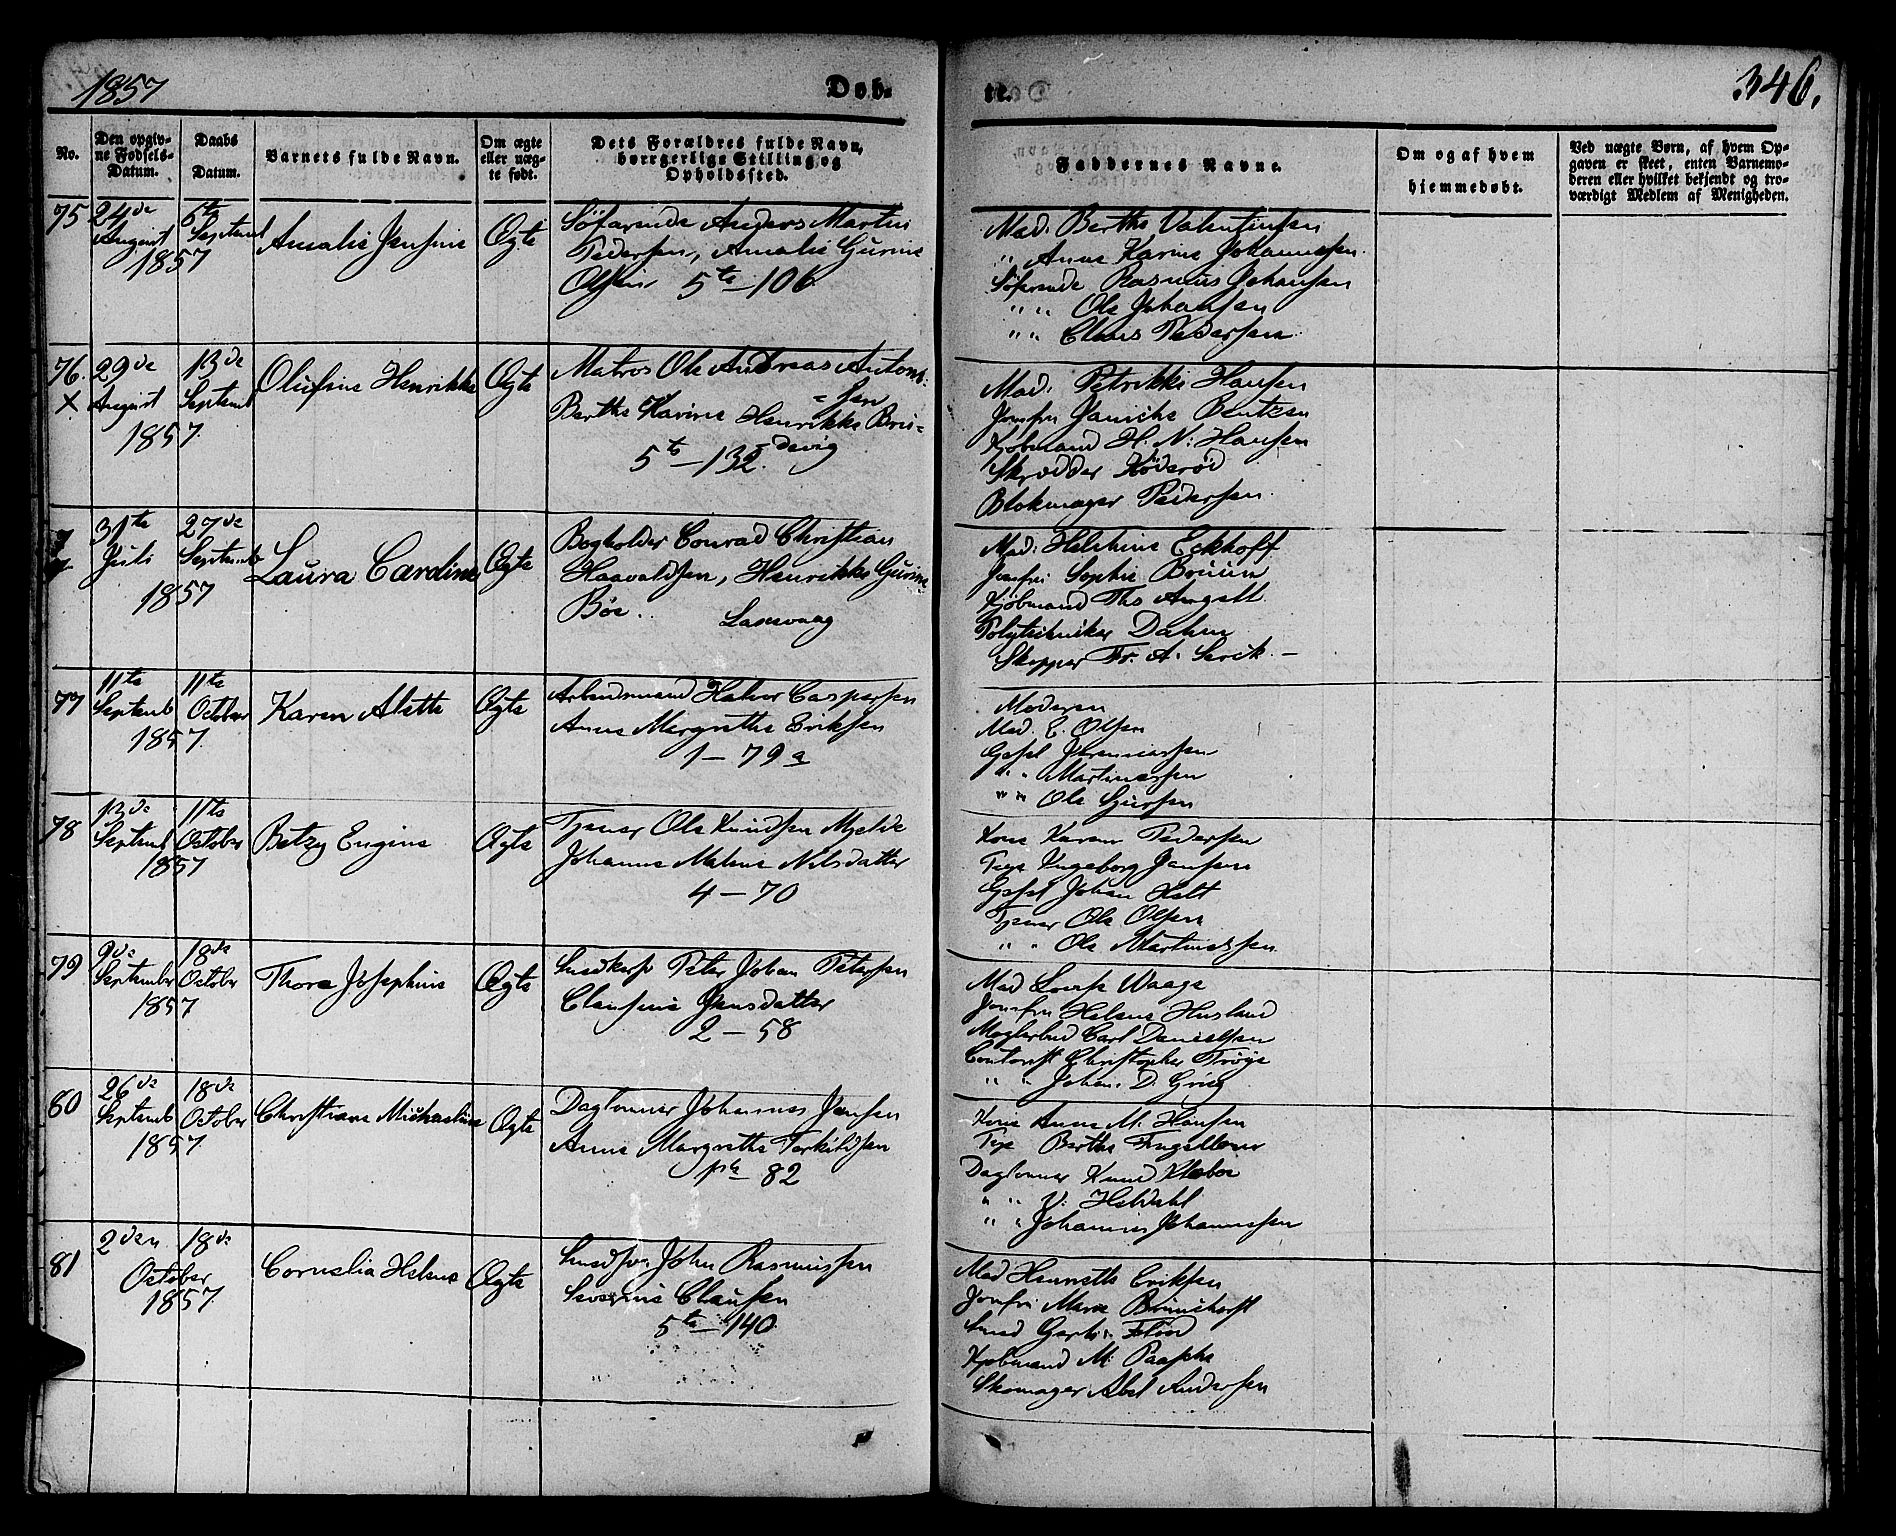 1857
Døb-
te.
346.
No.
Den opgiv-
ne Fødsels-
Datum.
Daabs
Datum.
Barnets fulde Navn.
Om ægte
eller uæg-
te født.
Dets Forældres fulde Navn,
borgerlige Stilling og
Opholdssted.
Faddernes Navne.
Om og af hvem
hjemmedøbt.
Ved uægte Børn, af hvem Op-
gaven er skeet, enten Barnemo-
deren eller hvilket bekjendt og tro-
værdigt Medlem af Menigheden.
75
24de
August
6te
Septemb
1857
Amalie Jensine
Ægte
Søfarende Anders Martin
Pedersen, Amalie Gurine
Olsen 5te – 106
Mad. Berthe Valentinsen
" Anne Karine Johannessen
Søfarende Rasmus Johansen
" " Ole Johansen
" " Claus Pedersen
76.
X
29de
August
13de
Septemb
1857
Olufine Henrikke
Ægte
Matros Ole Andreas Anton-
=sen
Berthe Karine Henrikke Bru=
devig
5te – 132.
Mad. Petrikke Hansen
Jomfru Janiche Bentzen
Kjøbmand H. N. Hansen
Skrædder
Blokmager Pedersen
31te
Juli
27de
Septemb
1857
Laura Cardine
Ægte
Bogholder Conrad Christian
Haavaldsen, Henrikke Gurine
Böe. Laxevaag
Mad. Eckhoff
Jomfru Sophie Bruun
Kjøbmand Ths Angell
Polytekniker Dahm
Skipper Fr. A.
77
11te
Septemb
11te
October
1857
Karen Alette
Ægte
Arbeidsmand Halvor Caspersen
Anne Margrethe Eriksen
1 – 79 a
Moderen
Mad. E. Olsen
Gesel
" " Martinussen
" " Ole
78
13de
Septemb
11te
October
1857
Betzy Engine
Ægte
Tjener Ole Knudsen Mjelde
Johanne Malene Nilsdatter
4 – 70
Kone Karen Pedersen
Pige Ingeborg Jansen
Gesel Johan Holt
Tjener Ole Olsen
" " Ole Martinussen
79
9de
September
18de
October
1857
Thora Josephine
Ægte
Peter Johan Petersen
Clausine Jensdatter
2 – 58
Mad Lovise Waage
Jomfru Helene Husland
Carl Danielsen
Contorist Christopher Trøye
" " Johan D. Grieg
80
26de
Septemb
18de
October
1857
Christiane Michaeline
Ægte
Daglonner Johannes Jansen
Anne Margrethe Terkildsen
82
Kone Anne M. Hansen
Pige Berthe
Daglonner Knud Klæboe
" " Heldahl
" " Johannes Johannessen
81
2den
18de
October
1857
Cornelia Helene
Ægte
John Rasmussen
Severine Clausen
5te – 140
Mad Henriette Eriksen
Jomfru Maren
Smed
Kjøbmand M. Paasche
Skomager Abel Andersen